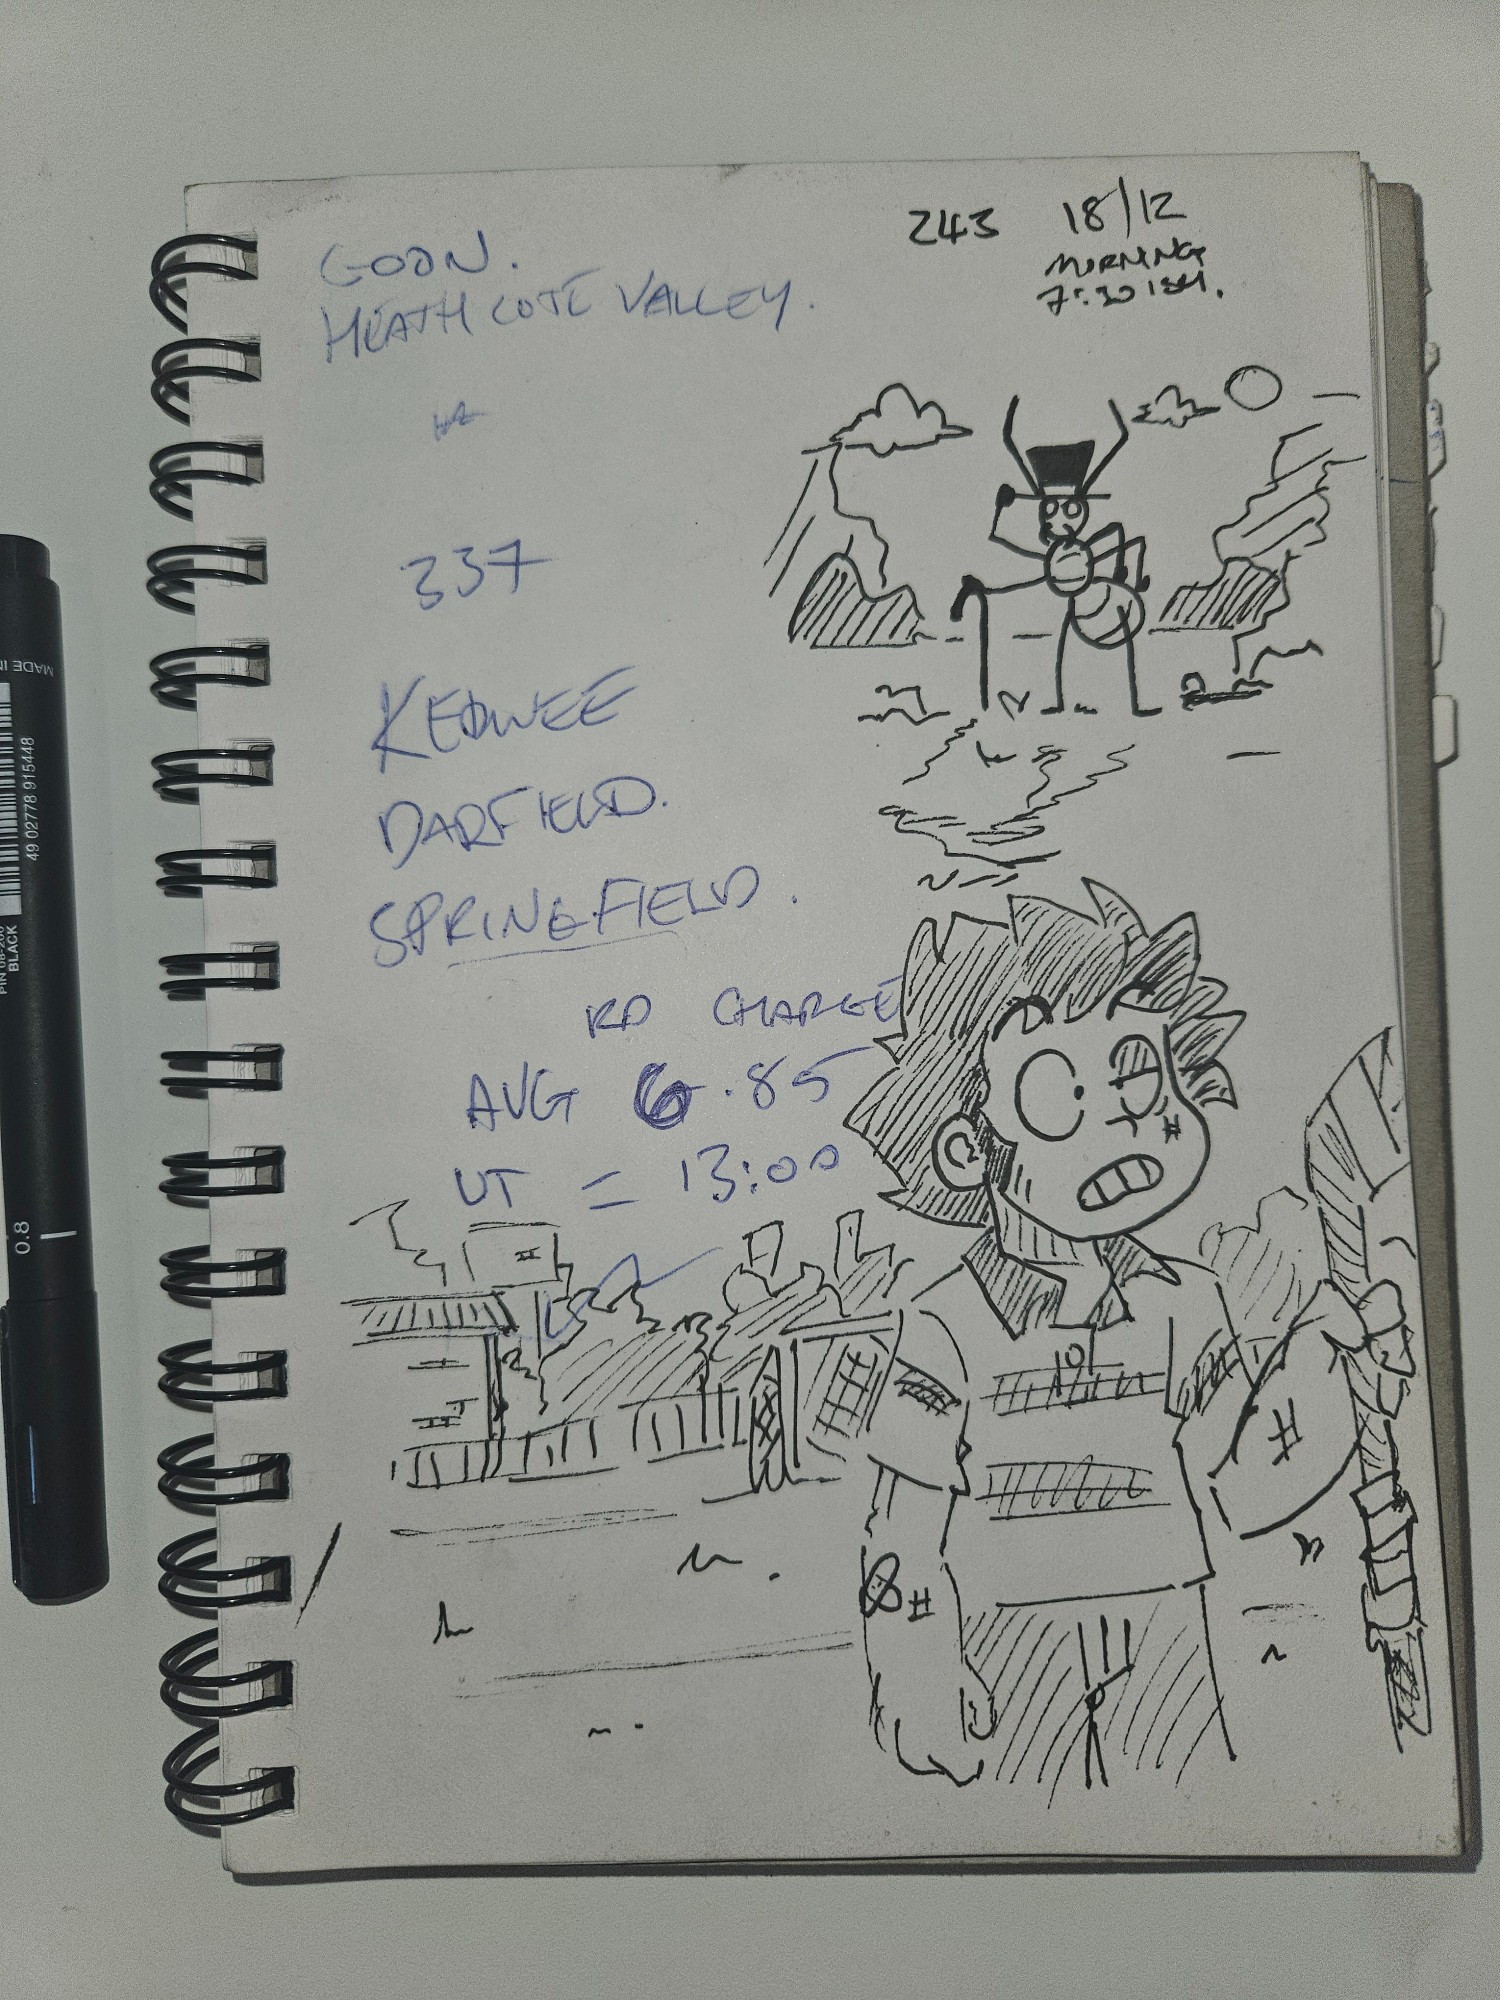 243 18/12
MORNING
7:30 ISH.
GOON.
HEATHCOTE VALLEY.
337
DARFIELD.
SPRINGFIELD.
RD CHARGE
AVG 6.85
UT = 13:00
MADE IN
49 02778 915448
PIN 08-200
BLACK
0.8